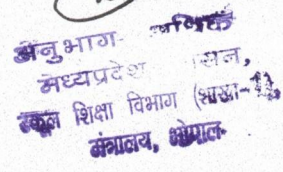 अनुभाग
मध्यप्रदेश
स्कूल शिक्षा विभाग (शाखा-1),
मंत्रालय, भोपाल